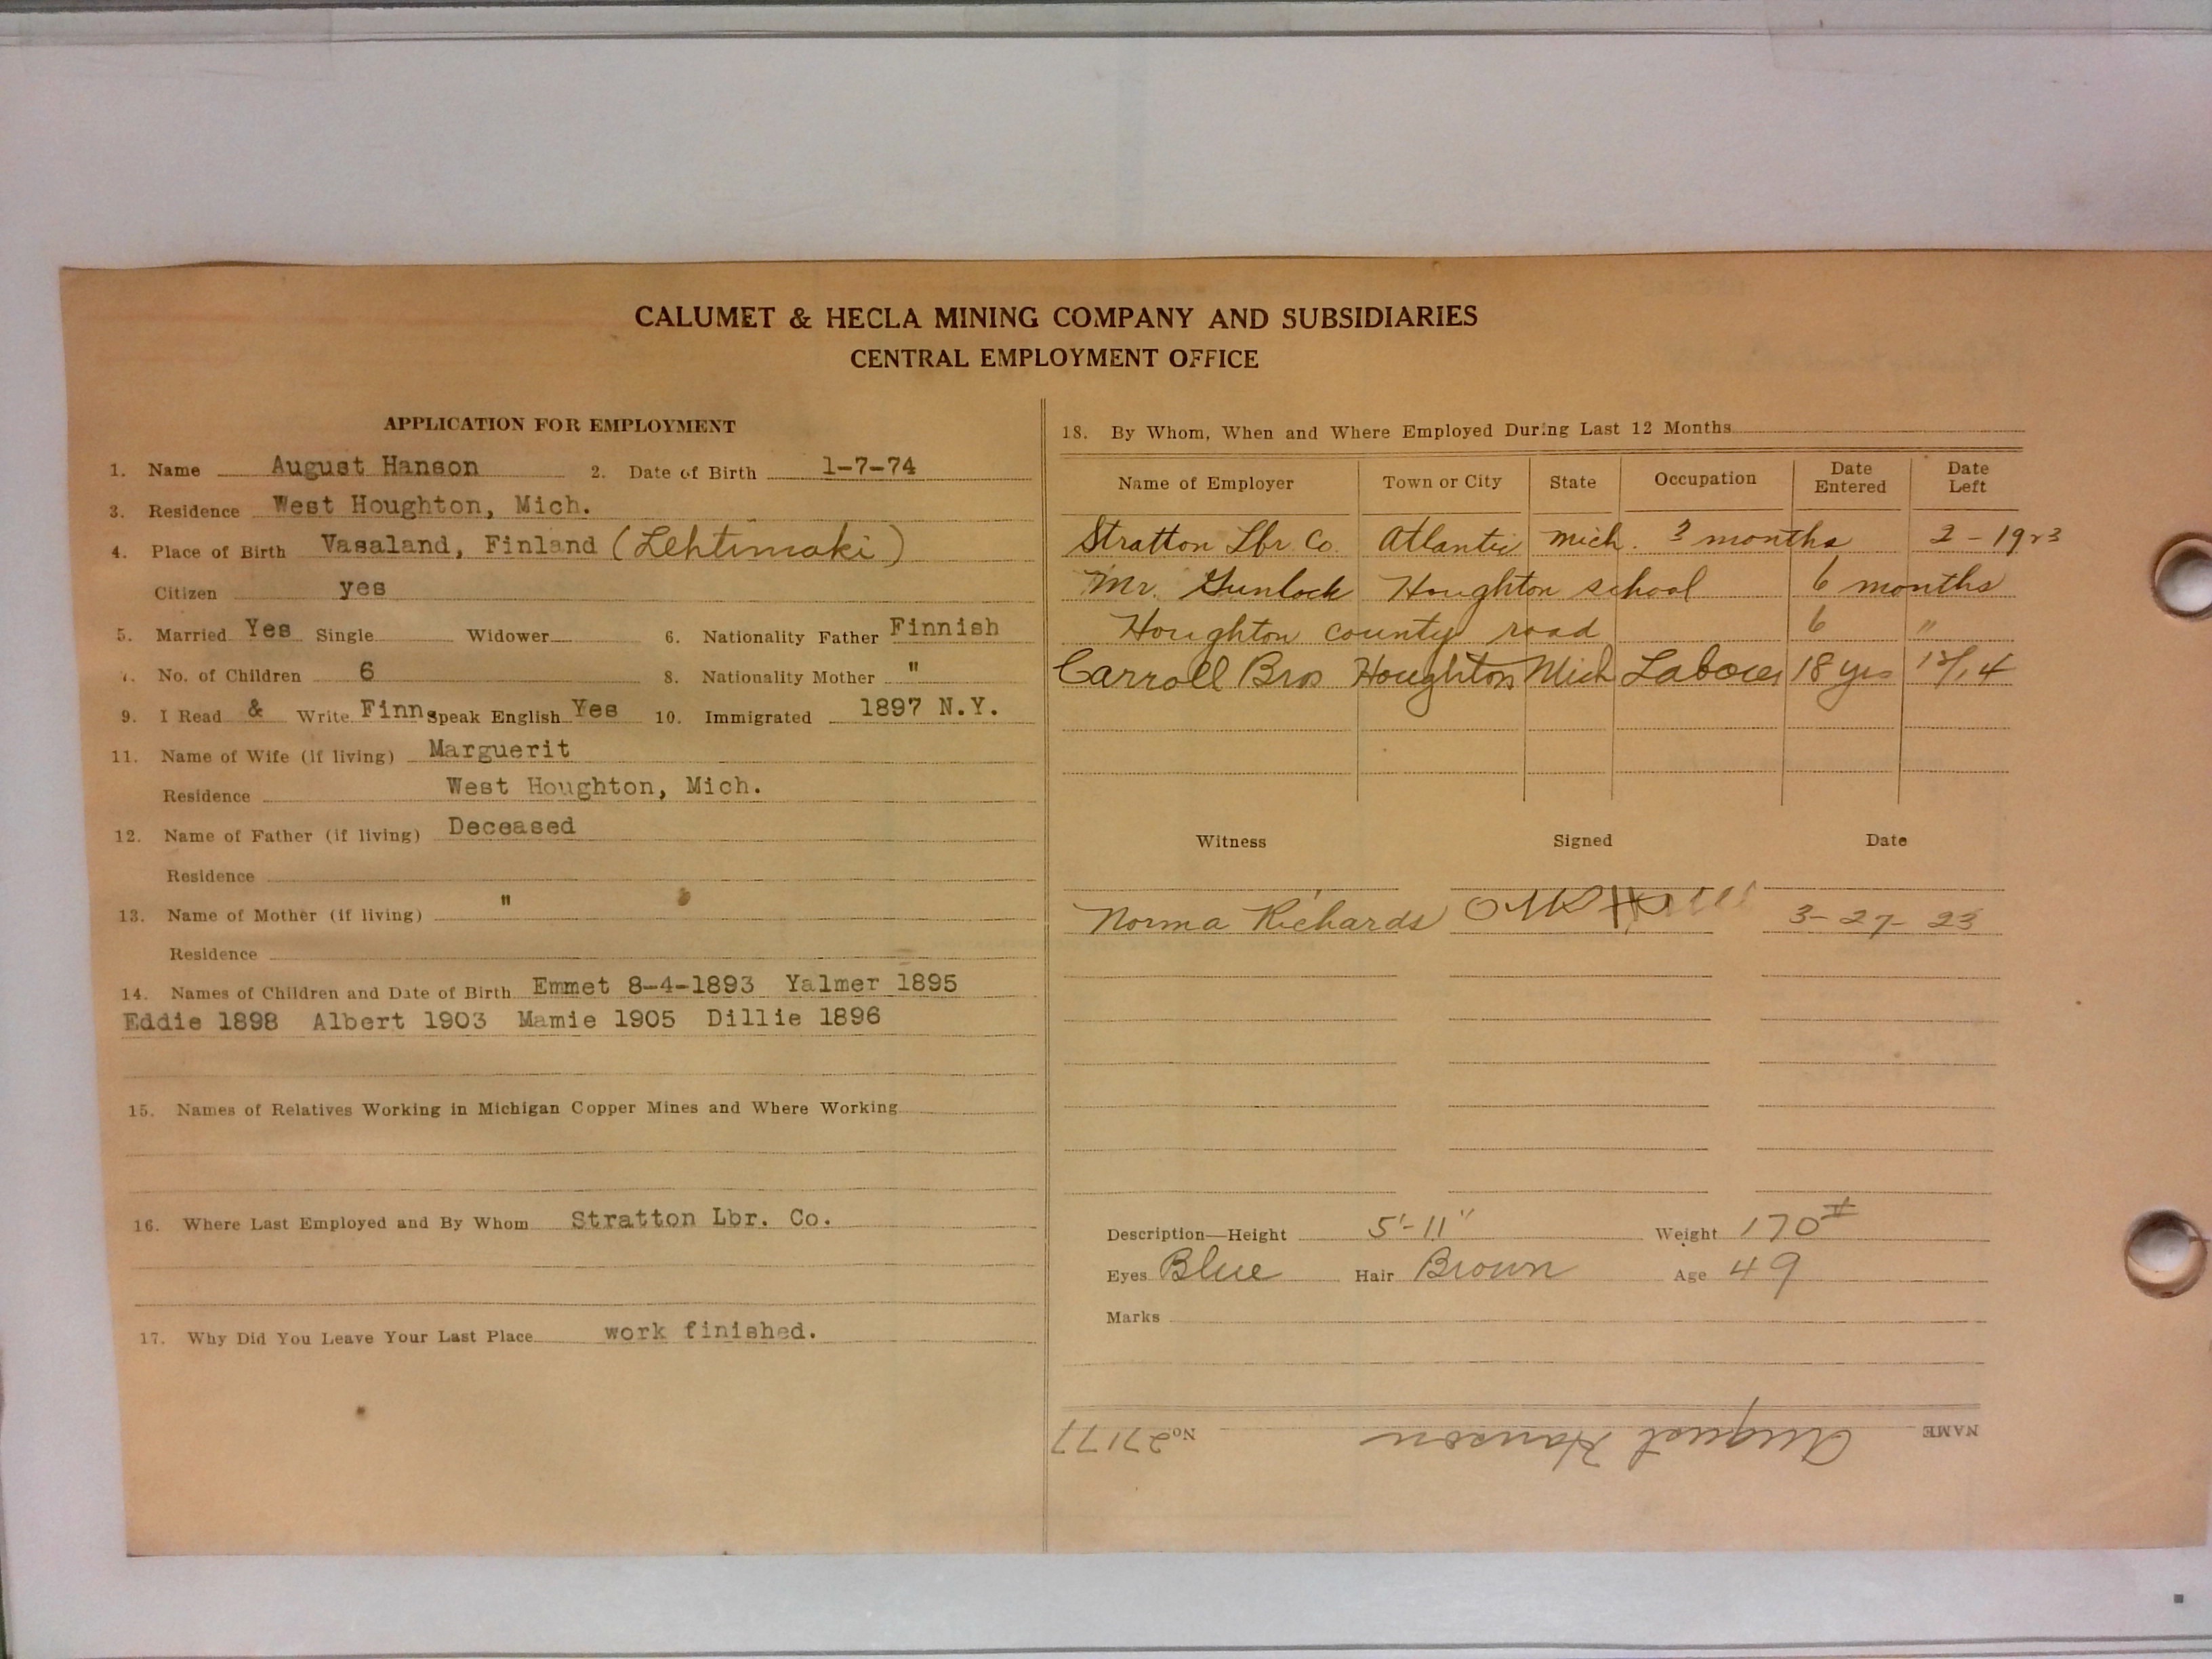 CALUMET & HECLA MINING COMPANY AND SUBSIDIARIES
CENTRAL EMPLOYMENT OFFICE
APPLICATION FOR EMPLOYMENT
1. Name August Hanson 2. Date of Birth 1-7-74
3. Residence West Houghton, Mich.
4. Place of Birth Vasaland, Finland (Lehtimaki)
Citizen yes
5. Married Yes Single Widower 6. Nationality Father Finnish
7. No. of Children 6 8. Nationality Mother "
9. I Read & Write Finn Speak English Yes 10. Immigrated 1897 N.Y.
11. Name of Wife (if living) Marguerit
Residence West Houghton, Mich.
12. Name of Father (if living) Deceased
Residence
13. Name of Mother (if living) "
Residence
14. Names of Children and Date of Birth Emmet 8-4-1893 Yalmer 1895
Eddie 1898 Albert 1903 Mamie 1905 Dillie 1896
15. Names of Relatives Working in Michigan Copper Mines and Where Working
16. Where Last Employed and By Whom Stratton Lbr. Co.
17. Why Did You Leave Your Last Place work finished.
18. By Whom, When and Where Employed During Last 12 Months
Name of Employer Town or City State Occupation Date Entered Date Left
Stratton Lbr Co. Atlantic Mich. 3 months 2-1923
Mr. Gunlock Houghton school 6 months
Houghton county road 6 "
Carroll Bros Houghton Mich Laborer 18 yrs
Witness Signed Date
Norma Richards 3-27-23
Description—Height 5'-11" Weight 170#
Eyes Blue Hair Brown Age 49
Marks
NAME August Hanson No. 27177